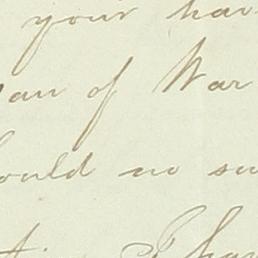 your hav
an of War
ould no su
I hav